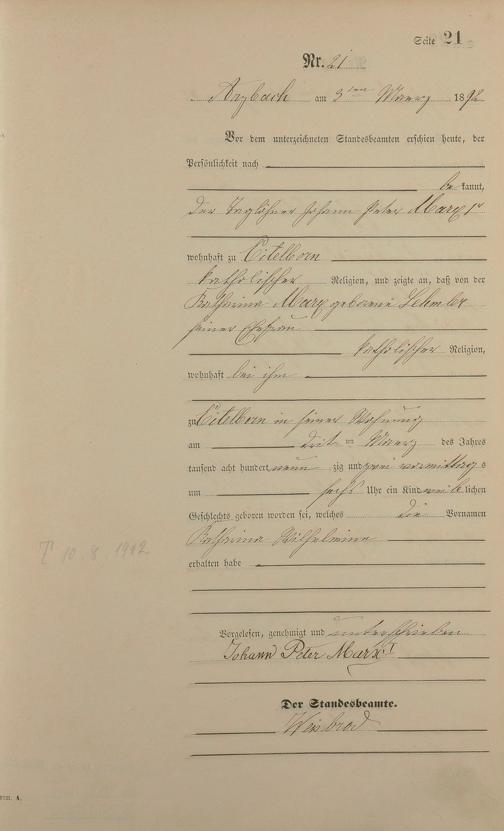 Seite 21
Nr. 21
Arzbach am 3ten Maerz 1892
Vor dem unterzeichneten Standesbeamten erschien heute, der
Persönlichkeit nach
be kannt,
der Taglöhner Johann Peter Marx I
wohnhaft zu Eitelborn
katholischer Religion, und zeigte an, daß von der
Katharina Marx geborene
seiner Ehefrau
katholischer Religion,
wohnhaft bei ihm
zu Eitelborn in seiner Wohnung
am dritten Maerz des Jahres
tausend acht hundert neun zig und zwei vormittag s
um sechs Uhr ein Kind weib lichen
Geschlechts geboren worden sei, welches die Vornamen
Katharina Wilhelmine
erhalten habe
T 10.8.1942
Vorgelesen, genehmigt und unterschrieben
Johann Peter Marx I
Der Standesbeamte.
Weisbrod
A.